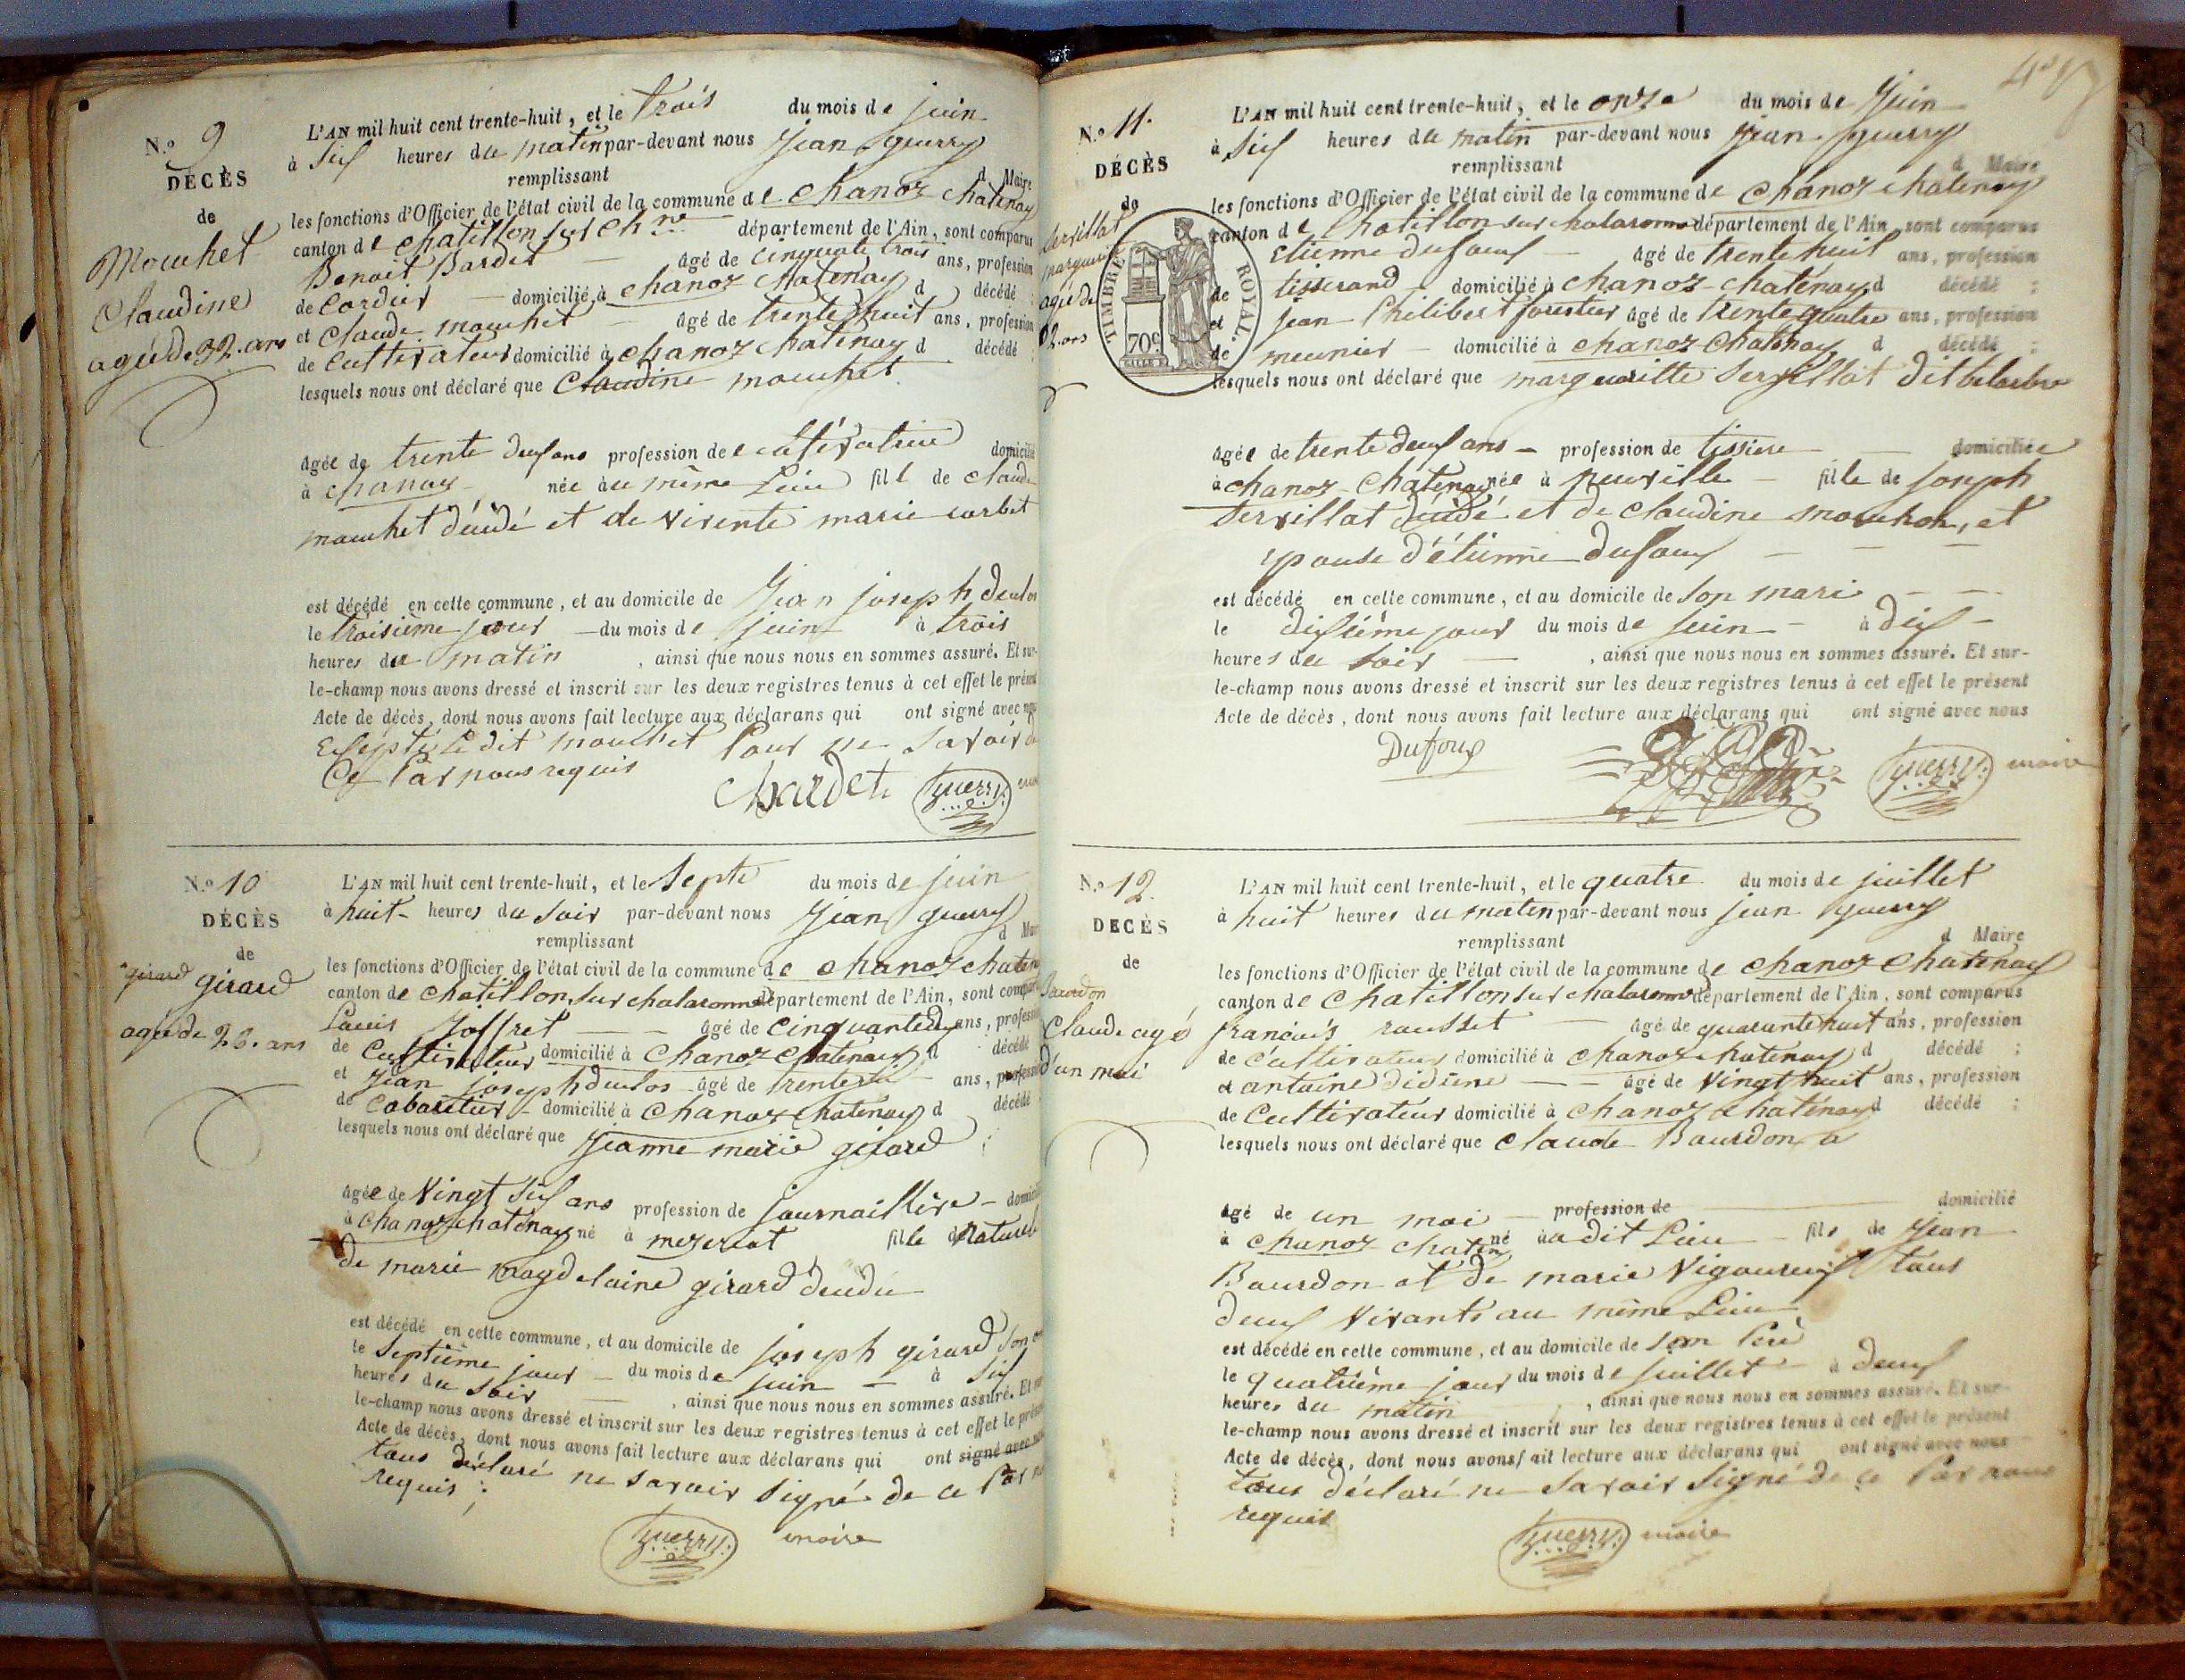 N.º 9
DÉCÈS
de
Mouchet
Claudine
agée de 32. ans
L'AN mil huit cent trente-huit, et le trois du mois de juin
à six heures du matin par-devant nous Jean guerry
remplissant d Maire
les fonctions d'Officier de l'état civil de la commune de chanoz chatenay
canton de chatillon sur ch.ne département de l'Ain, sont comparus
Benoit Bardet âgé de cinquante trois ans, profession
de Cordier domicilié à chanoz chatenay d décédé ;
et Claude mouchet âgé de trente huit ans, profession
de Cultivateur domicilié à chanoz chatenay d décédé ;
lesquels nous ont déclaré que Claudine mouchet
âgée de trente deux ans profession de cultivatrice domicilié
à chanoz née au même Lieu fill de claude
mouchet décédé et de vivente marie corbet
est décédé en cette commune, et au domicile de Jean joseph
le troisième jour du mois de juin à trois
heures du matin , ainsi que nous nous en sommes assuré. Et sur-
le-champ nous avons dressé et inscrit sur les deux registres tenus à cet effet le présent
Acte de décès, dont nous avons fait lecture aux déclarans qui ont signé avec nous
Exepté le dit mouchet Pour ne Savoir de
Ce Par nous requis
Bardet guerry
N.º 10
DÉCÈS
de
girard girard
agée de 26. ans
L'AN mil huit cent trente-huit, et le Septe du mois de juin
à huit heures du Soir par-devant nous Jean guerry
remplissant d Maire
les fonctions d'Officier de l'état civil de la commune de chanoz chaten
canton de chatillon sur chalaronne département de l'Ain, sont comparus
Louis Joffret âgé de cinquante ans, profession
de Cultivateur domicilié à Chanoz chatenay d décédé
et Jean joseph âgé de trente ans, profession
de Cabaretier domicilié à Chanoz chatenay d décédé
lesquels nous ont déclaré que Jeanne marie girard
âgée de vingt Six ans profession de journaillère domicilié
à chanoz chatenay né à mezeriat fille Naturel
de marie magdelaine girard
est décédé en cette commune, et au domicile de joseph girard Son
le Septième jour du mois de juin à Six
heures du Soir , ainsi que nous nous en sommes assuré. Et sur
le-champ nous avons dressé et inscrit sur les deux registres tenus à cet effet le présent
Acte de décès, dont nous avons fait lecture aux déclarans qui ont signé avec nous
tous déclaré ne Savoir Signé de ce Par nous
requis ;
guerry maire
N.º 11.
DÉCÈS
de
Servillat
marguerite
agée de
32. ans
TIMBRE ROYAL.
70c
L'AN mil huit cent trente-huit, et le onze du mois de Juin
à Six heures du matin par-devant nous Jean guerry
remplissant d Maire
les fonctions d'Officier de l'état civil de la commune de chanoz chatenay
canton de Chatillon sur chalaronne département de l'Ain, sont comparus
Etienne dufour âgé de trente huit ans, profession
de tisserand domicilié à chanoz-chaténay d décédé ;
et jean Philibert forestier âgé de trente quatre ans, profession
de meunier domicilié à chanoz Chatenay d décédé ;
lesquels nous ont déclaré que margueritte Servillat dit
âgée de trente deux ans profession de tissiere domiciliée
à chanoz Chatenay née à neuville fille de joseph
Servillat décédé et de Claudine mouchon, et
epouse d'étienne dufour
est décédé en cette commune, et au domicile de Son mari
le dixième jour du mois de juin à dix
heures du Soir , ainsi que nous nous en sommes assuré. Et sur-
le-champ nous avons dressé et inscrit sur les deux registres tenus à cet effet le présent
Acte de décès, dont nous avons fait lecture aux déclarans qui ont signé avec nous
Dufour guerry maire
N.º 12.
DÉCÈS
de
Bourdon
Claude agé
d'un moi
L'AN mil huit cent trente-huit, et le quatre du mois de juillet
à huit heures du matin par-devant nous jean guerry
remplissant d Maire
les fonctions d'Officier de l'état civil de la commune de chanoz Chatenay
canton de Chatillon sur chalaronne département de l'Ain, sont comparus
françois rousset âgé de quarante huit ans, profession
de Cultivateur domicilié à chanoz chatenay d décédé ;
et antoine âgé de vingt huit ans, profession
de Cultivateur domicilié à chanoz chaténay d décédé ;
lesquels nous ont déclaré que Claude Bourdon
âgé de un moi profession de domicilié
à chanoz chaten né au dit Lieu fils de Jean
Bourdon et de marie Vigoureux tous
deux vivants au même Lieu
est décédé en cette commune, et au domicile de Son Père
le quatrième jour du mois de juillet à deux
heures du matin , ainsi que nous nous en sommes assuré. Et sur-
le-champ nous avons dressé et inscrit sur les deux registres tenus à cet effet le présent
Acte de décès, dont nous avons fait lecture aux déclarans qui ont signé avec nous
tous déclaré ne Savoir Signé de ce Par nous
requis
guerry maire